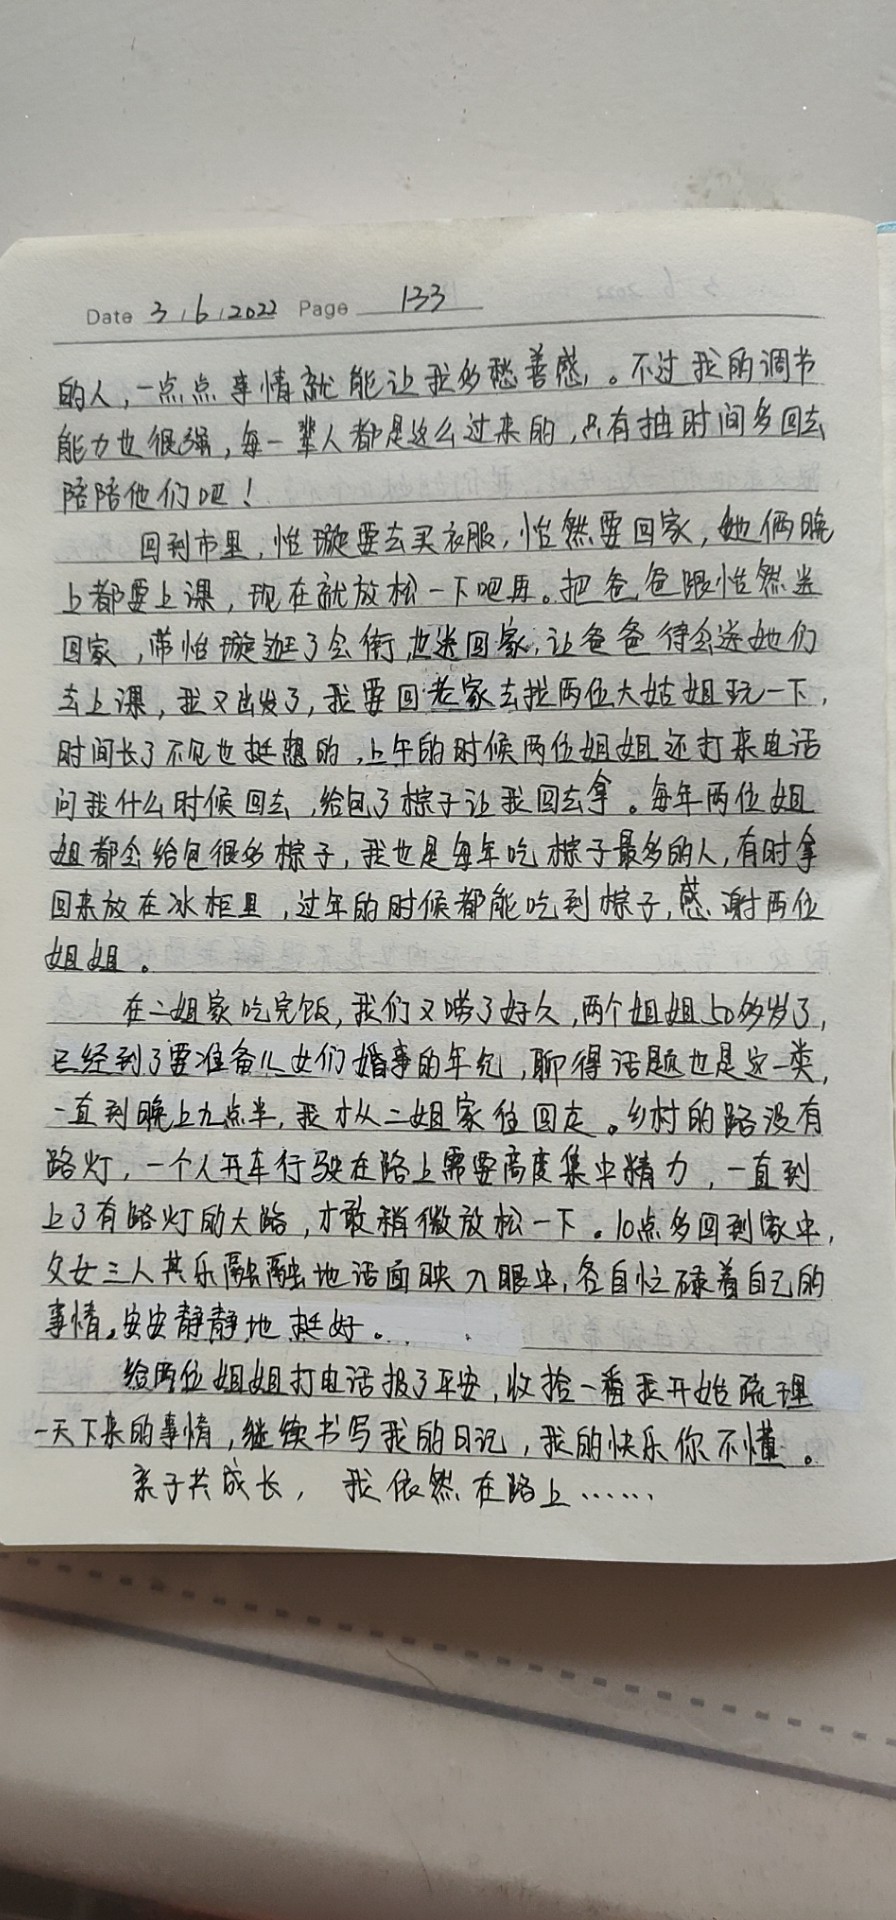 Date 3/6/2022 Page 133
的人,一点点事情就能让我多愁善感,。不过我的调节
能力也很强,每一辈人都是这么过来的,只有抽时间多回去
陪陪他们吧!
回到市里,怡璇要去买衣服,怡然要回家,她俩晚
上都要上课,现在就放松一下吧再。把爸爸跟怡然送
回家,带怡璇逛了会街,也送回家,让爸爸待会送她们
去上课,我又出发了,我要回老家去找两位大姑姐玩一下,
时间长了不见也挺想的,上午的时候两位姐姐还打来电话
问我什么时候回去,给包了粽子让我回去拿。每年两位姐
姐都会给包很多粽子,我也是每年吃粽子最多的人,有时拿
回来放在冰柜里,过年的时候都能吃到粽子,感谢两位
姐姐。
在二姐家吃完饭,我们又唠了好久,两个姐姐50多岁了,
已经到了要准备儿女们婚事的年纪,聊得话题也是这一类,
一直到晚上九点半,我才从二姐家往回走。乡村的路没有
路灯,一个人开车行驶在路上需要高度集中精力,一直到
上了有路灯的大路,才敢稍微放松一下。10点多回到家中,
父女三人其乐融融地话面映入眼中,各自忙碌着自己的
事情。安安静静地挺好。
给两位姐姐打电话报了平安,收拾一番我开始疏理
一天下来的事情,继续书写我的日记,我的快乐你不懂。
亲子共成长,我依然在路上……